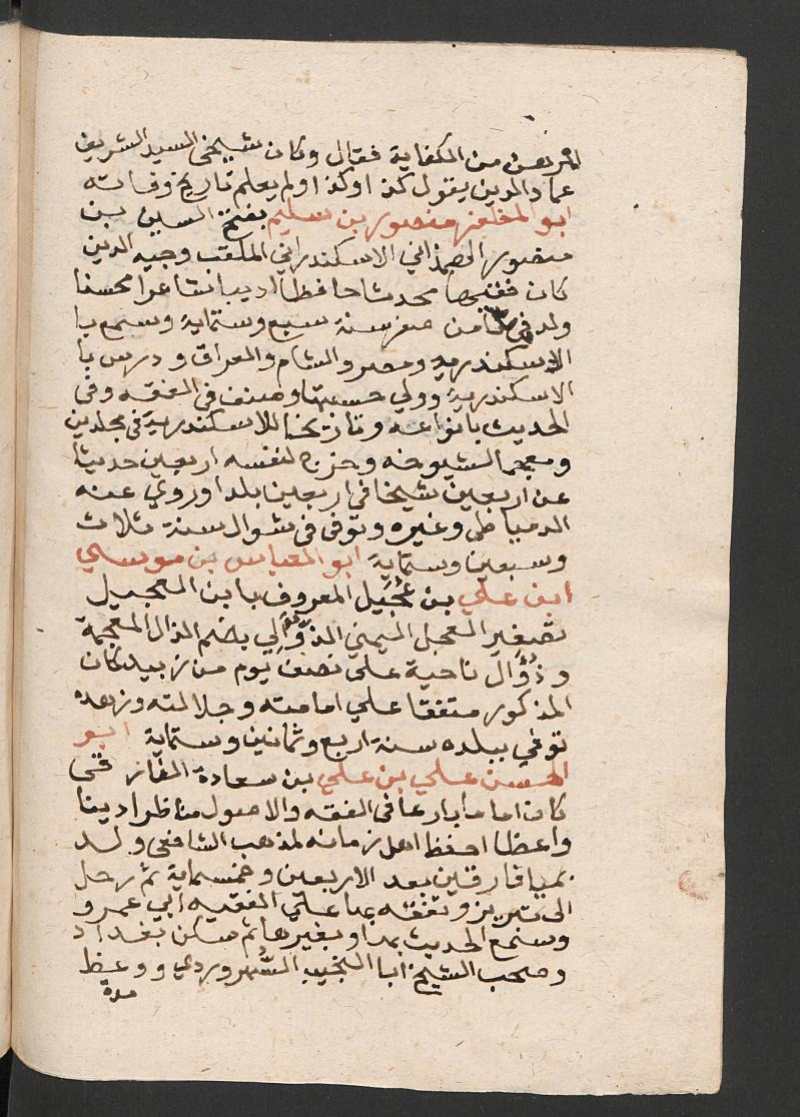 الرهن من الكفاية فقال وكان شيخي السيد الشريف
عماد الدين يقول كذا وكذا ولم يعلم تاريخ وفاته
ابو المظفر منصور بن سليم بفتح السين بن
منصور الهمذاني الاسكندراني الملقب وجيه الدين
كان فقيها محدثا حافظا اديبا شاعرا محسنا
ولد في ثامن صفر سنة سبع وستماية وسمع با
لاسكندرية ومصر والشام والعراق ودرس با
الاسكندرية وولي حسبتها وصنف في الفقه وفي
الحديث بانواعه وتاريخا للاسكندرية في مجلدين
ومعجما لشيوخه وخرج لنفسه اربعين حديثا
عن اربعين شيخا في اربعين بلدا وروي عنه
الدمياطي وغيره وتوفى في شوال سنة ثلاث
وسبعين وستماية ابو العباس بن موسي
ابن علي بن عُجَيل المعروف بابن العجيل
تصغير العجل اليمني الذؤالي بضم الذال المعجمة
وذُؤال ناحية على نصف يوم من زبيد كان
المذكور متفقا علي امامته وجلالته وزهده
توفي ببلده سنة اربع وثمانين وستماية ابو
الحسن علي بن علي بن سعادة الفارقى
كان اماما بارعا في الفقه والاصول مناظرا دينا
واعظا احفظ اهل زمانه لمذهب الشافعى ولد
بميافارقين بعد الاربعين وخمسماية ثم رحل
الى تبريز وتفقه بها علي الفقيه ابي عمرو
وسمع الحديث بها وبغيرها ثم سكن بغداد
وصحب الشيخ ابا النجيب السُّهروردي ووعظ
مدة